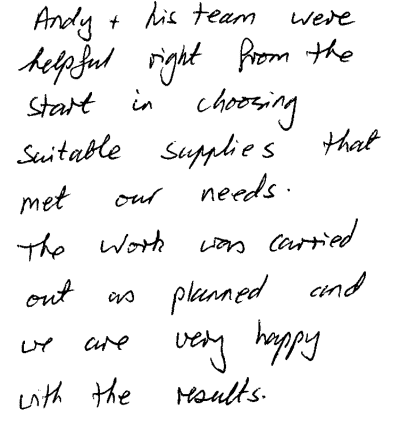 Andy + his team were
helpful right from the
start in choosing
suitable supplies that
met our needs.
The work was carried
out as planned and
we are very happy
with the results.